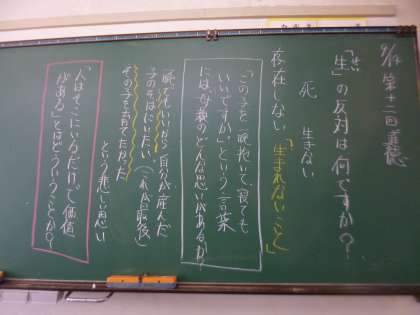 9/14 第十二回 道徳
「生」の反対は何ですか?
せい
死 生きない
存在しない「生まれないこと」
「この子を一晩抱いて寝ても
いいですか」という言葉
には母親のどんな思いがあるか?
一晩でもいいから自分が産んだ
子のそばにいたい(これが最後)
その子を育てたかった
という悲しい思い
「人はそこにいるだけで価値
がある」とはどういうことか?